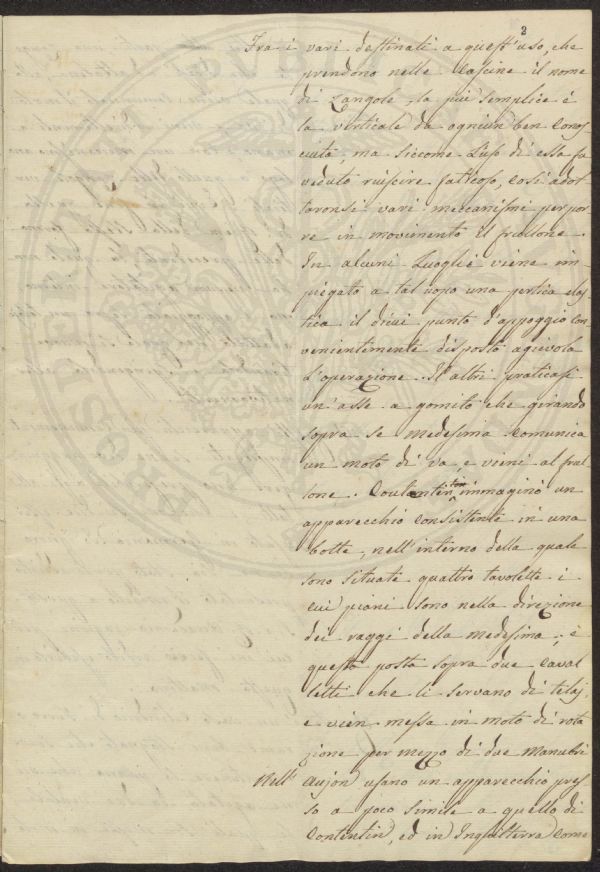 2
Fra i vari destinati a quest'uso, che
prendono nelle Cascine il nome
di Zangole, la più semplice è
la verticale da ogniun ben Conos
ciuta, ma siccome l'uso di essa fu
veduto riuscire faticoso, Così adot
taronsi vari meccanismi per por
re in movimento il frullone.
In alcuni Luoghi viene im
piegato a tal uopo una pertica elas
tica il dicui punto d'appoggio con
venientimente disposto agevola
l'operazione. In altri praticasi
un'asse a gomito che girando
sopra se medesima Comunica
un moto di va, e vieni al frul
lone. immaginò un
apparecchio Consistente in una
botte, nell'interno della quale
sono situate quattro tavolette i
cui piani sono nella direzione
dei raggi della medesima, e
questa posta sopra due Caval
letti che li servano di telaj,
e vien messa in moto di rota
zione per mezzo di due Manubri
Nell' usano un apparecchio pres
so a poco simile a quello di
Contentin, ed in Inghilterra Come